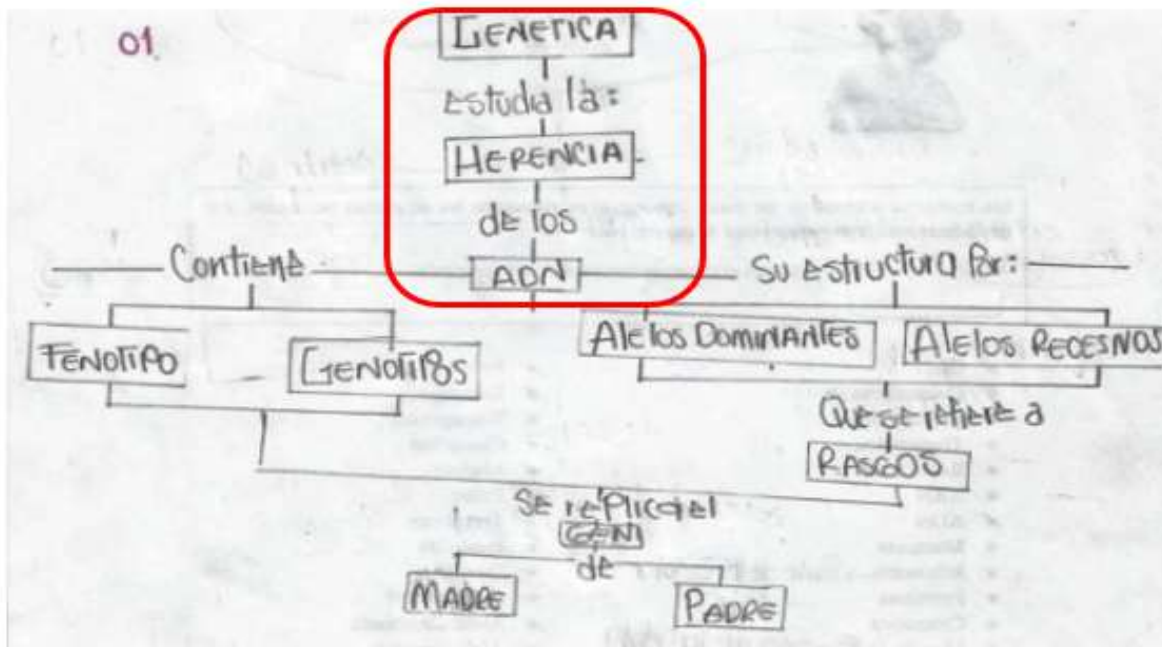 01
GENETICA
Estudia la:
HERENCIA
de los
Contiene
ADN
Su estructura Por:
FENOTIPO
GENOTIPOS
Alelos DOMINANTES
Alelos RECESIVOS
Que se refiere a
RASGOS
SE rePlica el
GEN
de
MADRE
PADRE